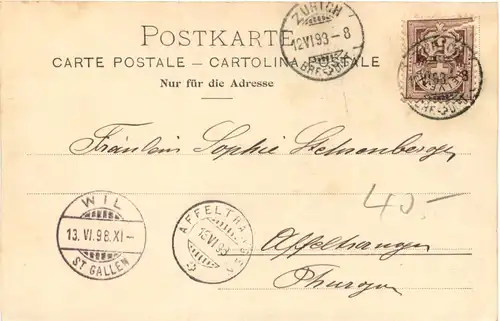 POSTKARTE
CARTE POSTALE — CARTOLINA POSTALE
Nur für die Adresse
ZÜRICH
12 VI 98 - 8
BRF. EXP.
Fräulein Sophie
40.-
WIL
13. VI. 98. XI -
ST GALLEN
AFFELTRANGEN
13 VI 98
Affeltrangen
Thurgau